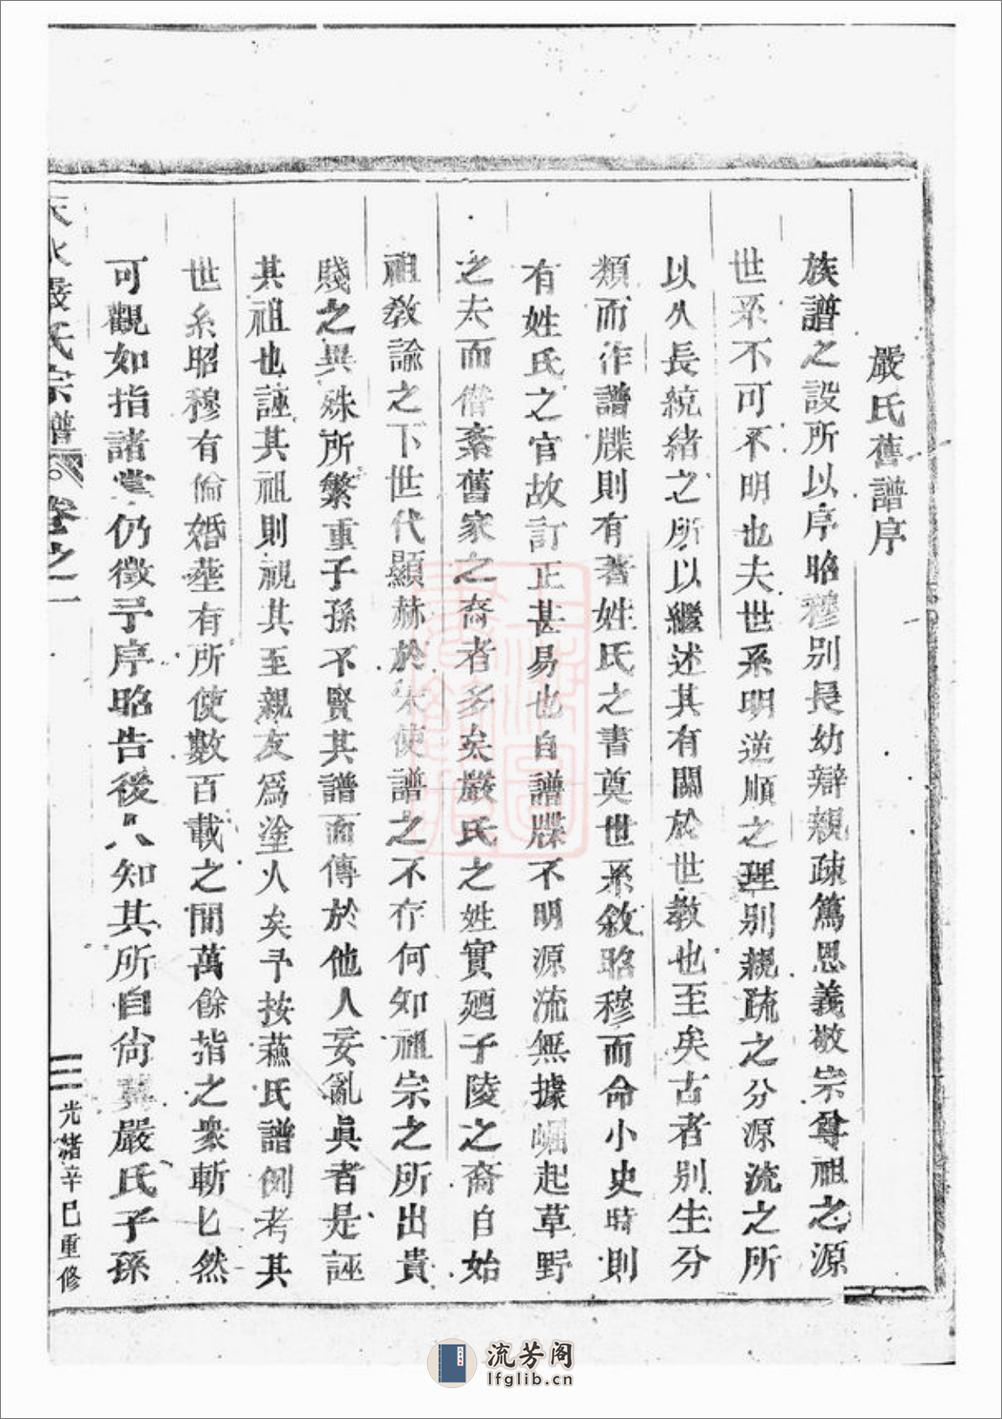 嚴氏舊譜序
族譜之設所以序昭穆別長幼辯親疎篤恩義敬宗尊祖之源
世系不可不明也夫世系明逆順之理別親疏之分源流之所
以久長統緒之所以繼述其有關於世教也至矣古者別生分
類而作譜牒則有著姓氏之書奠世系敘昭穆而命小史時則
有姓氏之官故訂正甚易也自譜牒不明源流無據崛起草野
之夫而僭紊舊家之裔者多矣嚴氏之姓實廼子陵之裔自始
祖教諭之下世代顯赫於宋使譜之不存何知祖宗之所出貴
賤之異殊所繁重子孫不賢其譜而傳於他人妄亂眞者是誣
其祖也誣其祖則視其至親友爲塗人矣予按蘓氏譜例考其
世系昭穆有倫婚塟有所使數百載之間萬餘指之衆斬匕然
可觀如指諸掌仍徵予序昭告後人知其所自尙冀嚴氏子孫
天水嚴氏宗譜 卷之一
三 光緒辛巳重修
流芳阁
lfglib.cn